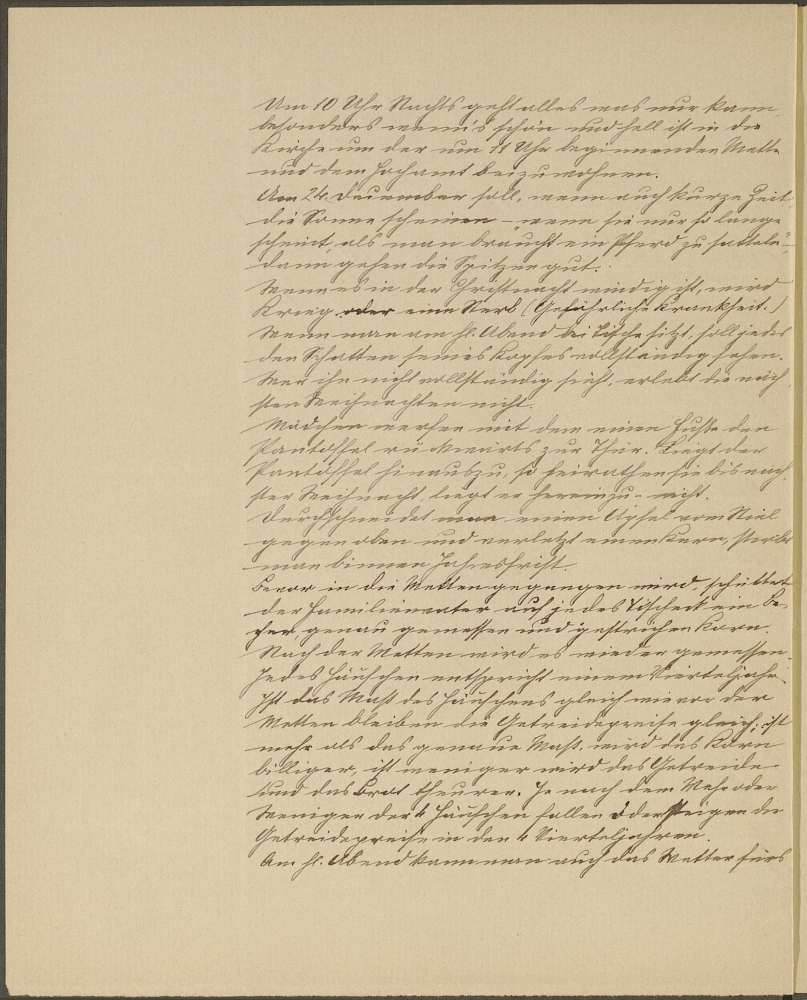 Um 10 Uhr Nachts geht alles was nur kann,
besonders wenn's schön und hell ist in die
Kirche um der um 11 Uhr beginnenden Mette
und dem Hochamt beizuwohnen.
Am 24. December soll, wenn auch kurze Zeit,
die Sonne scheinen – „wenn sie nur so lange
scheint, als man braucht ein Pferd zu satteln" –
dann gehen die Spitzen gut.
Wenn es in der Christnacht windig ist, wird
Krieg oder eine Sterb (Gefährliche Krankheit.)
Wenn man am hl. Abend bei Tische sitzt, soll jedes
den Schatten seines Kopfes vollständig sehen.
Wer ihn nicht vollständig sieht, erlebt die näch
sten Weihnachten nicht.
Mädchen werfen mit dem einen Fuße den
Pantoffel rückwärts zur Thür. Liegt der
Pantoffel hinauszu, so heirathen sie bis näch
ster Weihnacht, liegt er hereinzu – nicht.
Durchschneidet man einen Apfel vom Stiel
gegen oben und verletzt einen Kern, stirbt
man binnen Jahresfrist.
Bevor in die Metten gegangen wird, schüttet
der Familienvater auf jedes Tischeck ein Be-
cher genau gemessen und gestrichen Korn.
Nach der Metten wird es wieder gemessen.
Jedes Häufchen entspricht einem Vierteljahr.
Ist das Maß des Häufchens gleich wie vor der
Metten bleiben die Getreidepreise gleich, ist
mehr als das genaue Maß, wird das Korn
billiger, ist weniger wird das Getreide
und das Brot theurer. Je nach dem Mehr oder
Weniger der 4 Häufchen fallen oder steigen die
Getreidepreise in den 4 Vierteljahren.
Am hl. Abend kann man auch das Wetter fürs